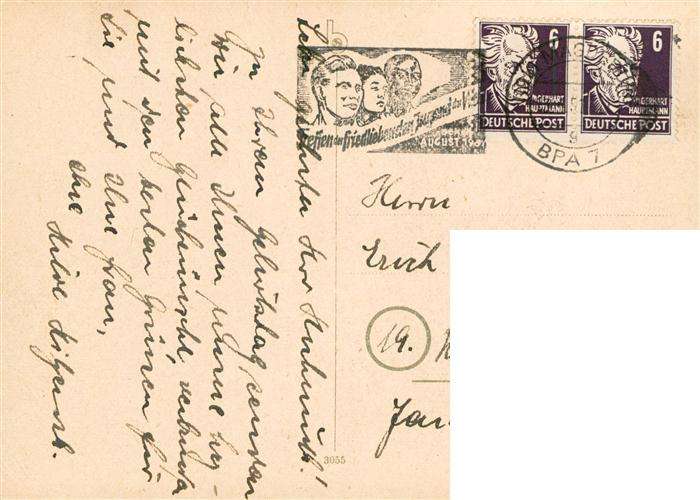 Sehr geehrter Herr
Zu Ihrem Geburtstag senden
wir alle Ihnen unsere herz-
lichsten Glückwünsche, verbunden
mit den besten Grüssen für
Sie und Ihre Frau,
Ihre Hilde
6
GERHART
HAUPTMANN
DEUTSCHE POST
6
GERHART
HAUPTMANN
DEUTSCHE POST
Treffen der friedliebenden Jugend
AUGUST 1951
BPA 7
Herrn
Erich
19.
3055